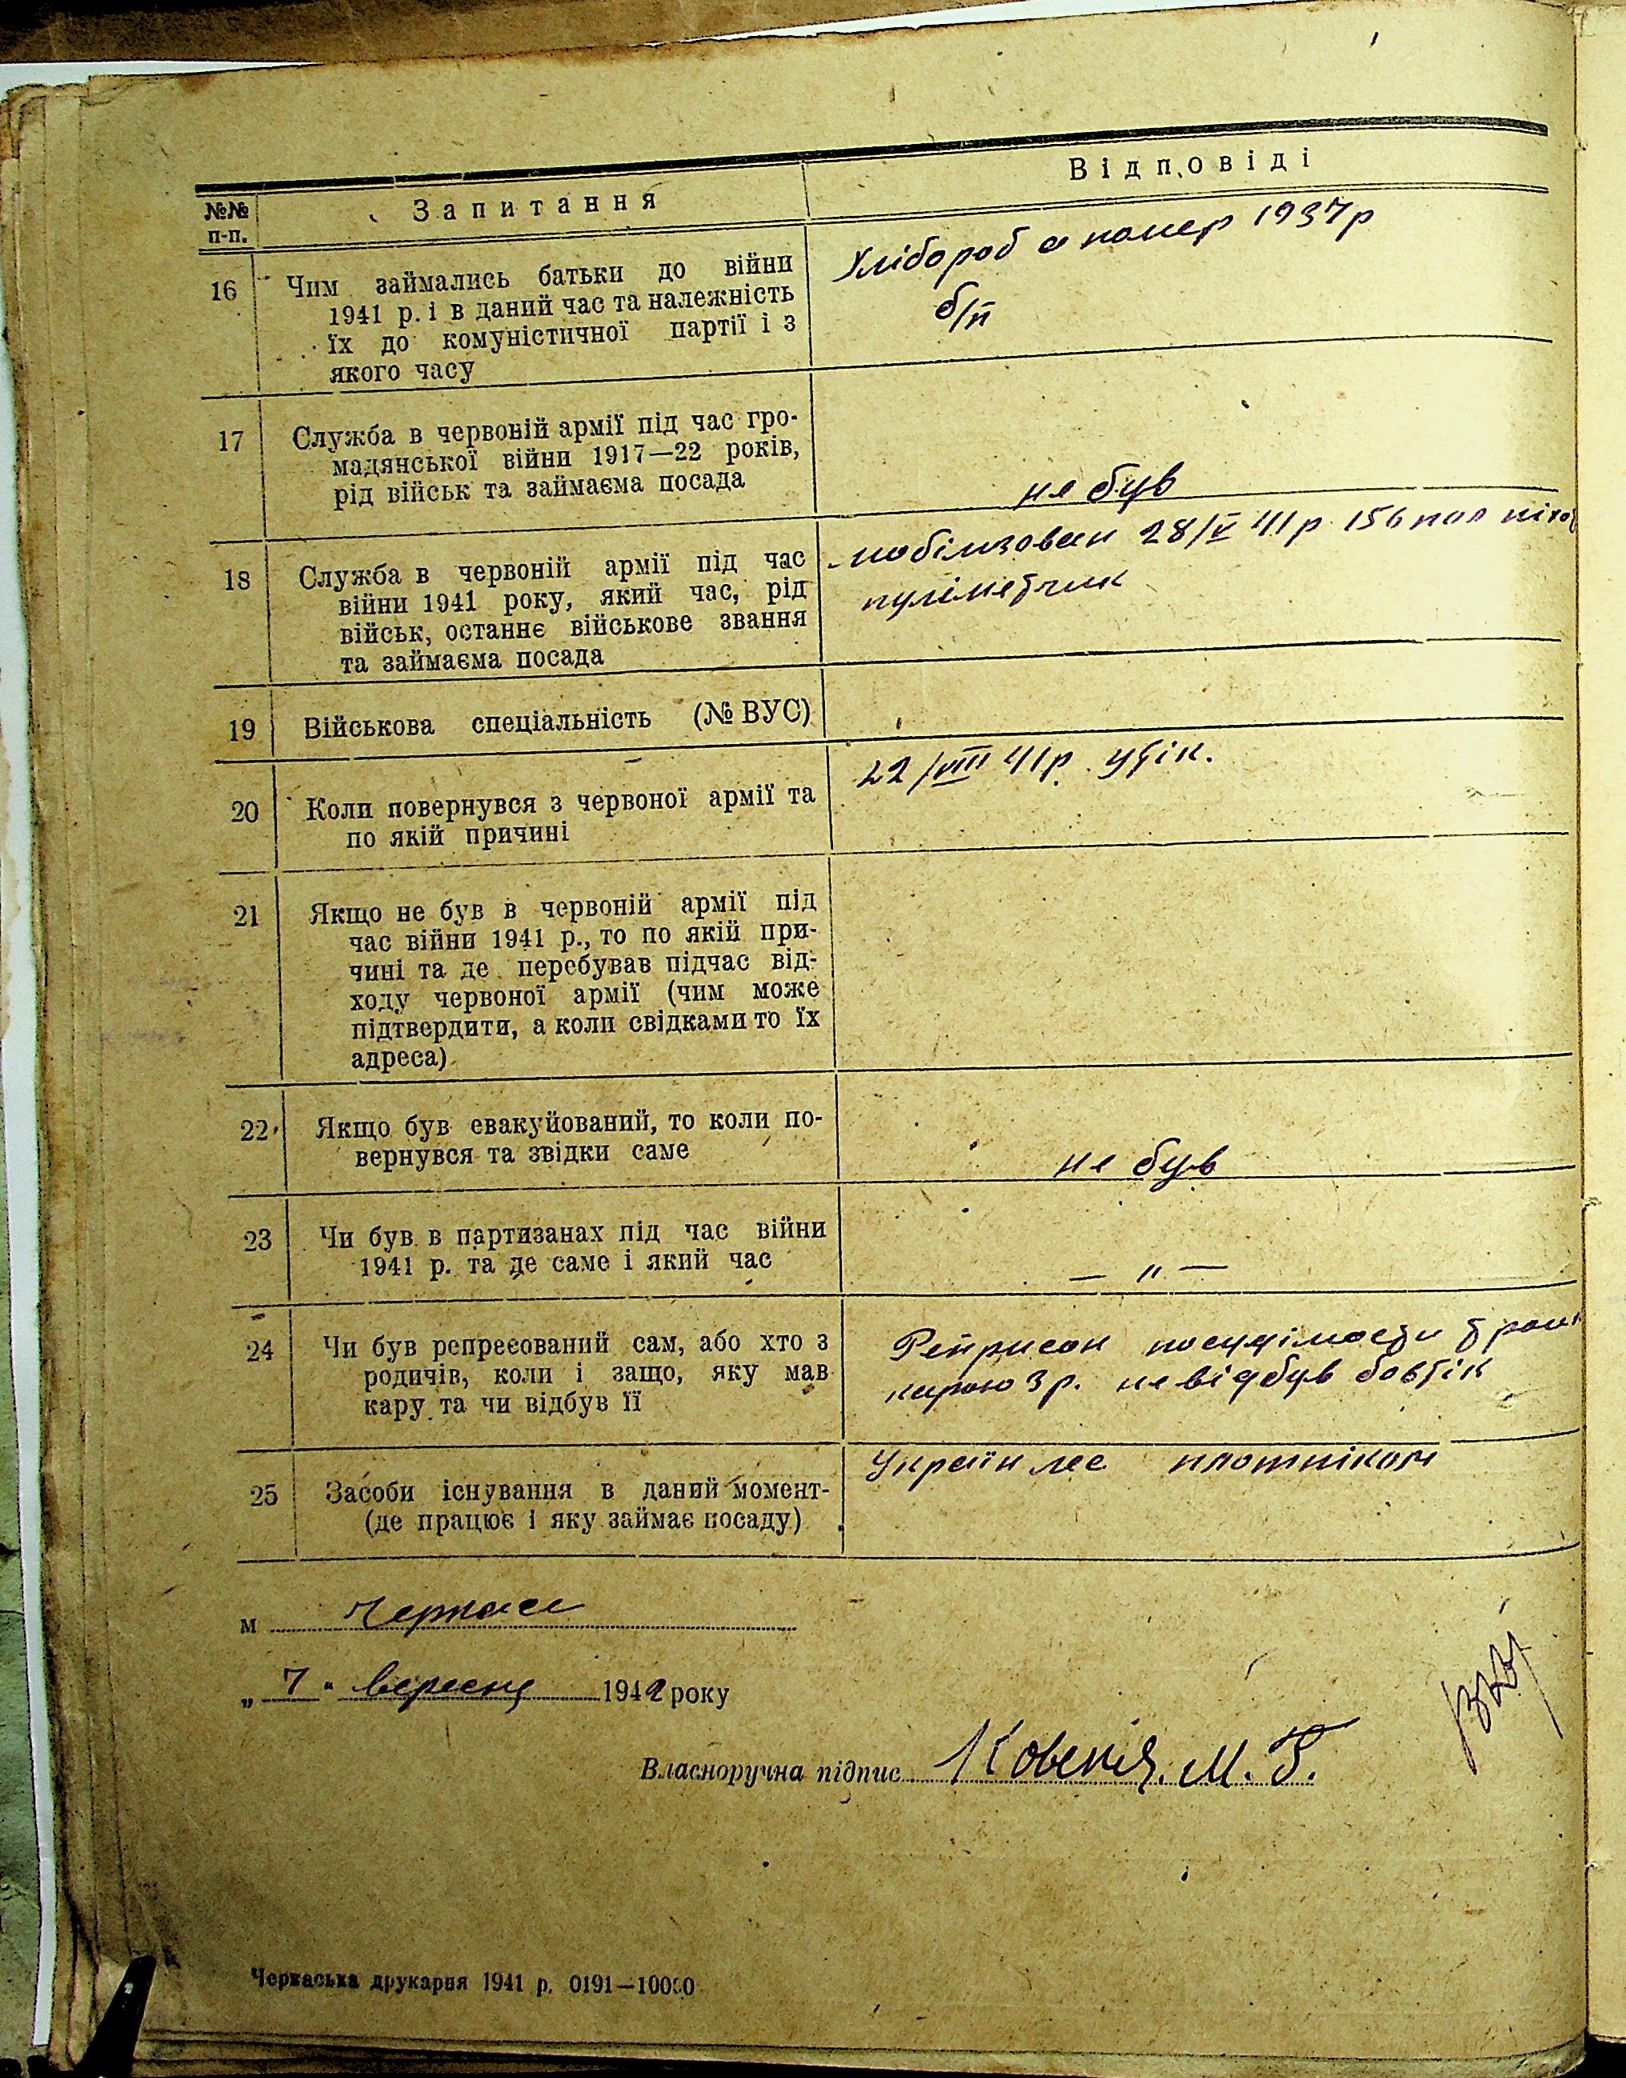 №№ п-п.
Запитання
Відповіді
16
Чим займались батьки до війни
1941 р. і в даний час та належність
їх до комуністичної партії і з
якого часу
Хлібороб помер 1937р
б/п
17
Служба в червоній армії під час гро-
мадянської війни 1917—22 років,
рід військ та займаєма посада
не був
18
Служба в червоній армії під час
війни 1941 року, який час, рід
військ, останнє військове звання
та займаєма посада
мобілизован 28/V 41р. 156 пол піхо
пулеметчик
19
Військова спеціальність (№ ВУС)
20
Коли повернувся з червоної армії та
по якій причині
22/VIII 41р. утік.
21
Якщо не був в червоній армії під
час війни 1941 р., то по якій при-
чині та де перебував підчас від-
ходу червоної армії (чим може
підтвердити, а коли свідками то їх
адреса)
22
Якщо був евакуйований, то коли по-
вернувся та звідки саме
не був
23
Чи був в партизанах під час війни
1941 р. та де саме і який час
— " —
24
Чи був репресований сам, або хто з
родичів, коли і защо, яку мав
кару та чи відбув її
карою 3 р. не відбув бо втік
25
Засоби існування в даний момент-
(де працює і яку займає посаду)
Україн лес плотніком
м Черкаси
„ 7 " вересня 1942 року
Власноручна підпис М. Г.
Черкаська друкарня 1941 р. 0191—10000